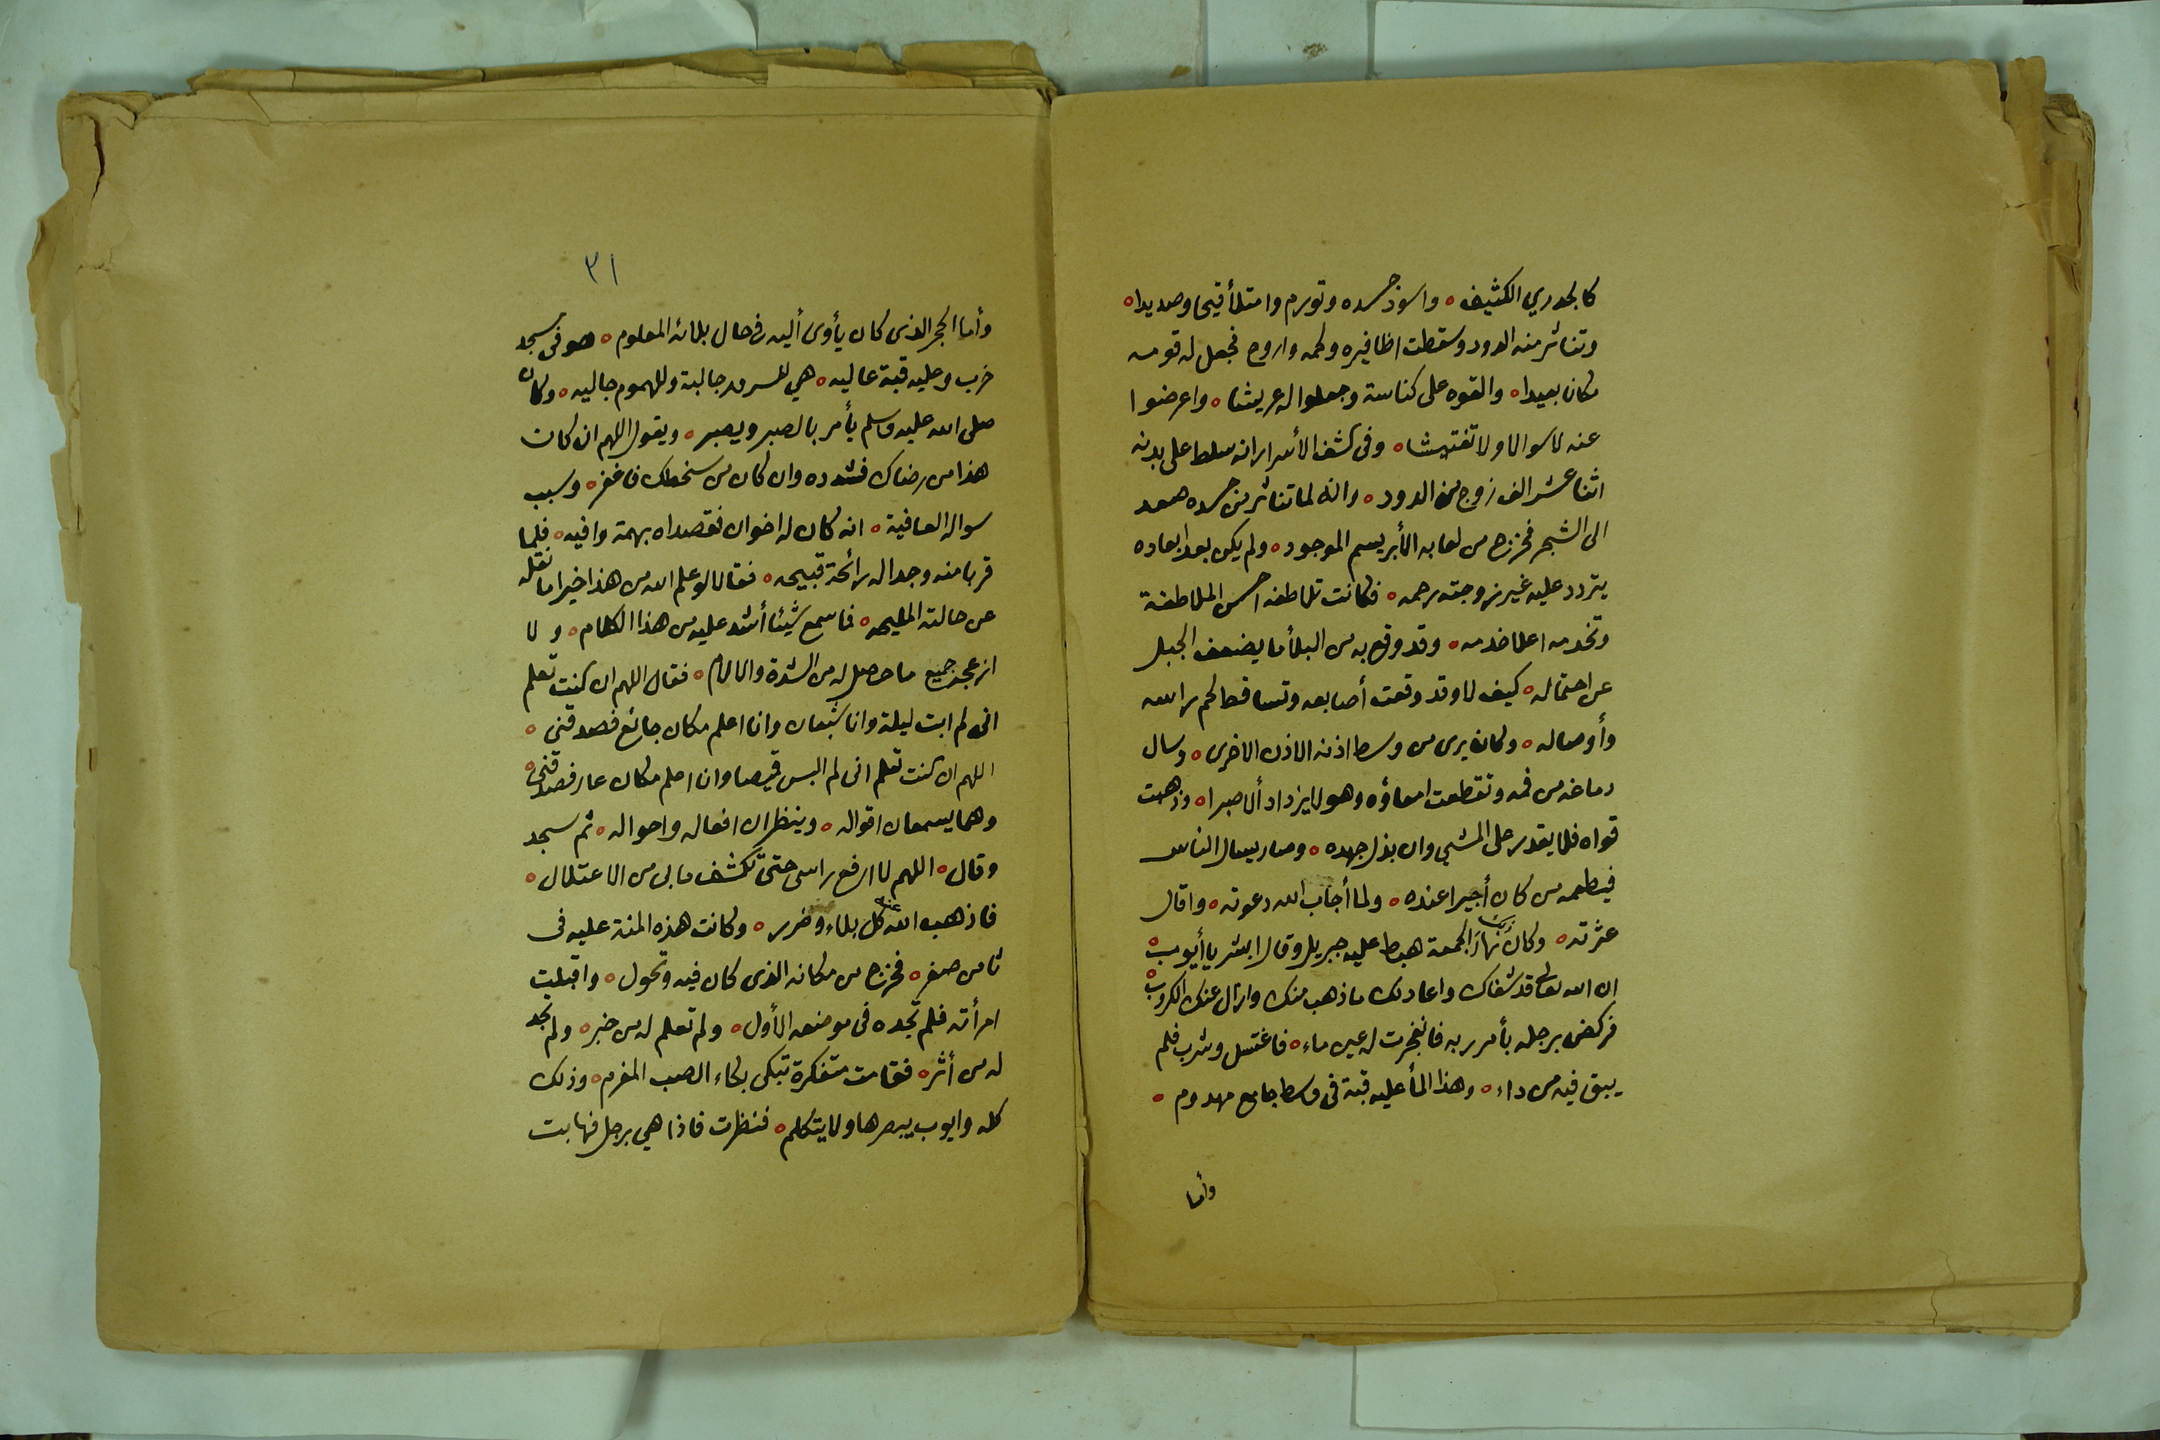 كالجدري الكثيف ه واسود جسده وتورم وامتلأ قيحا وصديدا ه
وتناثر منه الدود وسقطت اظافيره ولحمه واروح فجعل له قومه
مكان بعيدا ه والقوه على كناسة وجعلوا له عريشا ه واعرضوا
عنه لا سوالا ولا تفتيشا ه وفى كشف الأسرار انه سلط على بدنه
اثنا عشر الف زوج من الدود ه وانه لما تناثر من جسده صعد
الى الشجر فخرج من لعابه الأبريسم الموجود ه ولم يكن بعد ابعاده
يتردد عليه غير زوجته رحمه ه فكانت تلاطفه احسن الملاطفة
وتخدمه اعلا خدمه ه وقد وقع به من البلأ ما يضعف الجبل
عن احتماله ه كيف لا وقد وقعت أصابعه وتساقط لحم راسه
وأوصاله ه وكان يرى من وسط اذنه الاذن الاخرى ه وسال
دماغه من فمه وتقطعت امعاؤه وهو لا يزداد ألا صبرا ه وذهبت
قواه فلا يقدر على المشي وان بذل جهده ه وصار يسال الناس
فيطعمه من كان أجيرا عنده ه ولما أجاب الله دعوته ه واقال
عثرته ه وكان نهار الجمعة هبط عليه جبريل وقال ابشر يا أيوب ه
ان الله تعالى قد شفاك واعاد لك ما ذهب منك وازال عنك الكروب ه
فركض برجله بأمر ربه فانفجرت له عين ماء ه فاغتسل وشرب فلم
يبق فيه من داء ه وهذا المأ عليه قبة فى وسط جامع مهدوم ه
وأما
٣١
وأما الحجر الذى كان يأوى أليه فى حال بلائه المعلوم ه هو فى مسجد
خرب وعليه قبة عاليه ه هي للسرور جالبة وللهموم جاليه ه وكان
صلى الله عليه وسلم يأمر بالصبر ويصبر ه ويقول اللهم ان كان
هذا من رضاك فشدده وان كان من سخطك فاغفر ه وسبب
سواله العافية ه انه كان له اخوان فقصداه بهمة وافيه ه فلما
قربا منه وجدا له رائحة قبيحه ه فقالا لو علم الله من هذا خيرا ما نقله
عن حالته المليحه ه فما سمع شيئا أشد عليه من هذا الكلام ه ولا
ازعجه جميع ما حصل له من الشدة والالام ه فقال اللهم ان كنت تعلم
انى لم ابت ليلة وانا شبعان وانا اعلم مكان جائع فصدقنى ه
اللهم ان كنت تعلم انى لم البس قميصا وانا اعلم مكان عار فصدقنى ه
وهما يسمعان اقواله ه وينظران افعاله واحواله ه ثم سجد
وقال ه اللهم لا ارفع راسى حتى تكشف ما بى من الاعتلال ه
فاذهب الله عنه كل بلاء وضرر ه وكانت هذه المنة عليه فى
ثامن صفر ه فخرج من مكانه الذى كان فيه وتحول ه واقبلت
امرأته فلم تجده فى موضعه الأول ه ولم تعلم له من خبر ه ولم تجد
له من أثر ه فقامت متفكرة تبكى بكاء الصب المغرم ه وذلك
كله وايوب يبصرها ولا يتكلم ه فنظرت فاذا هي برجل فهابت